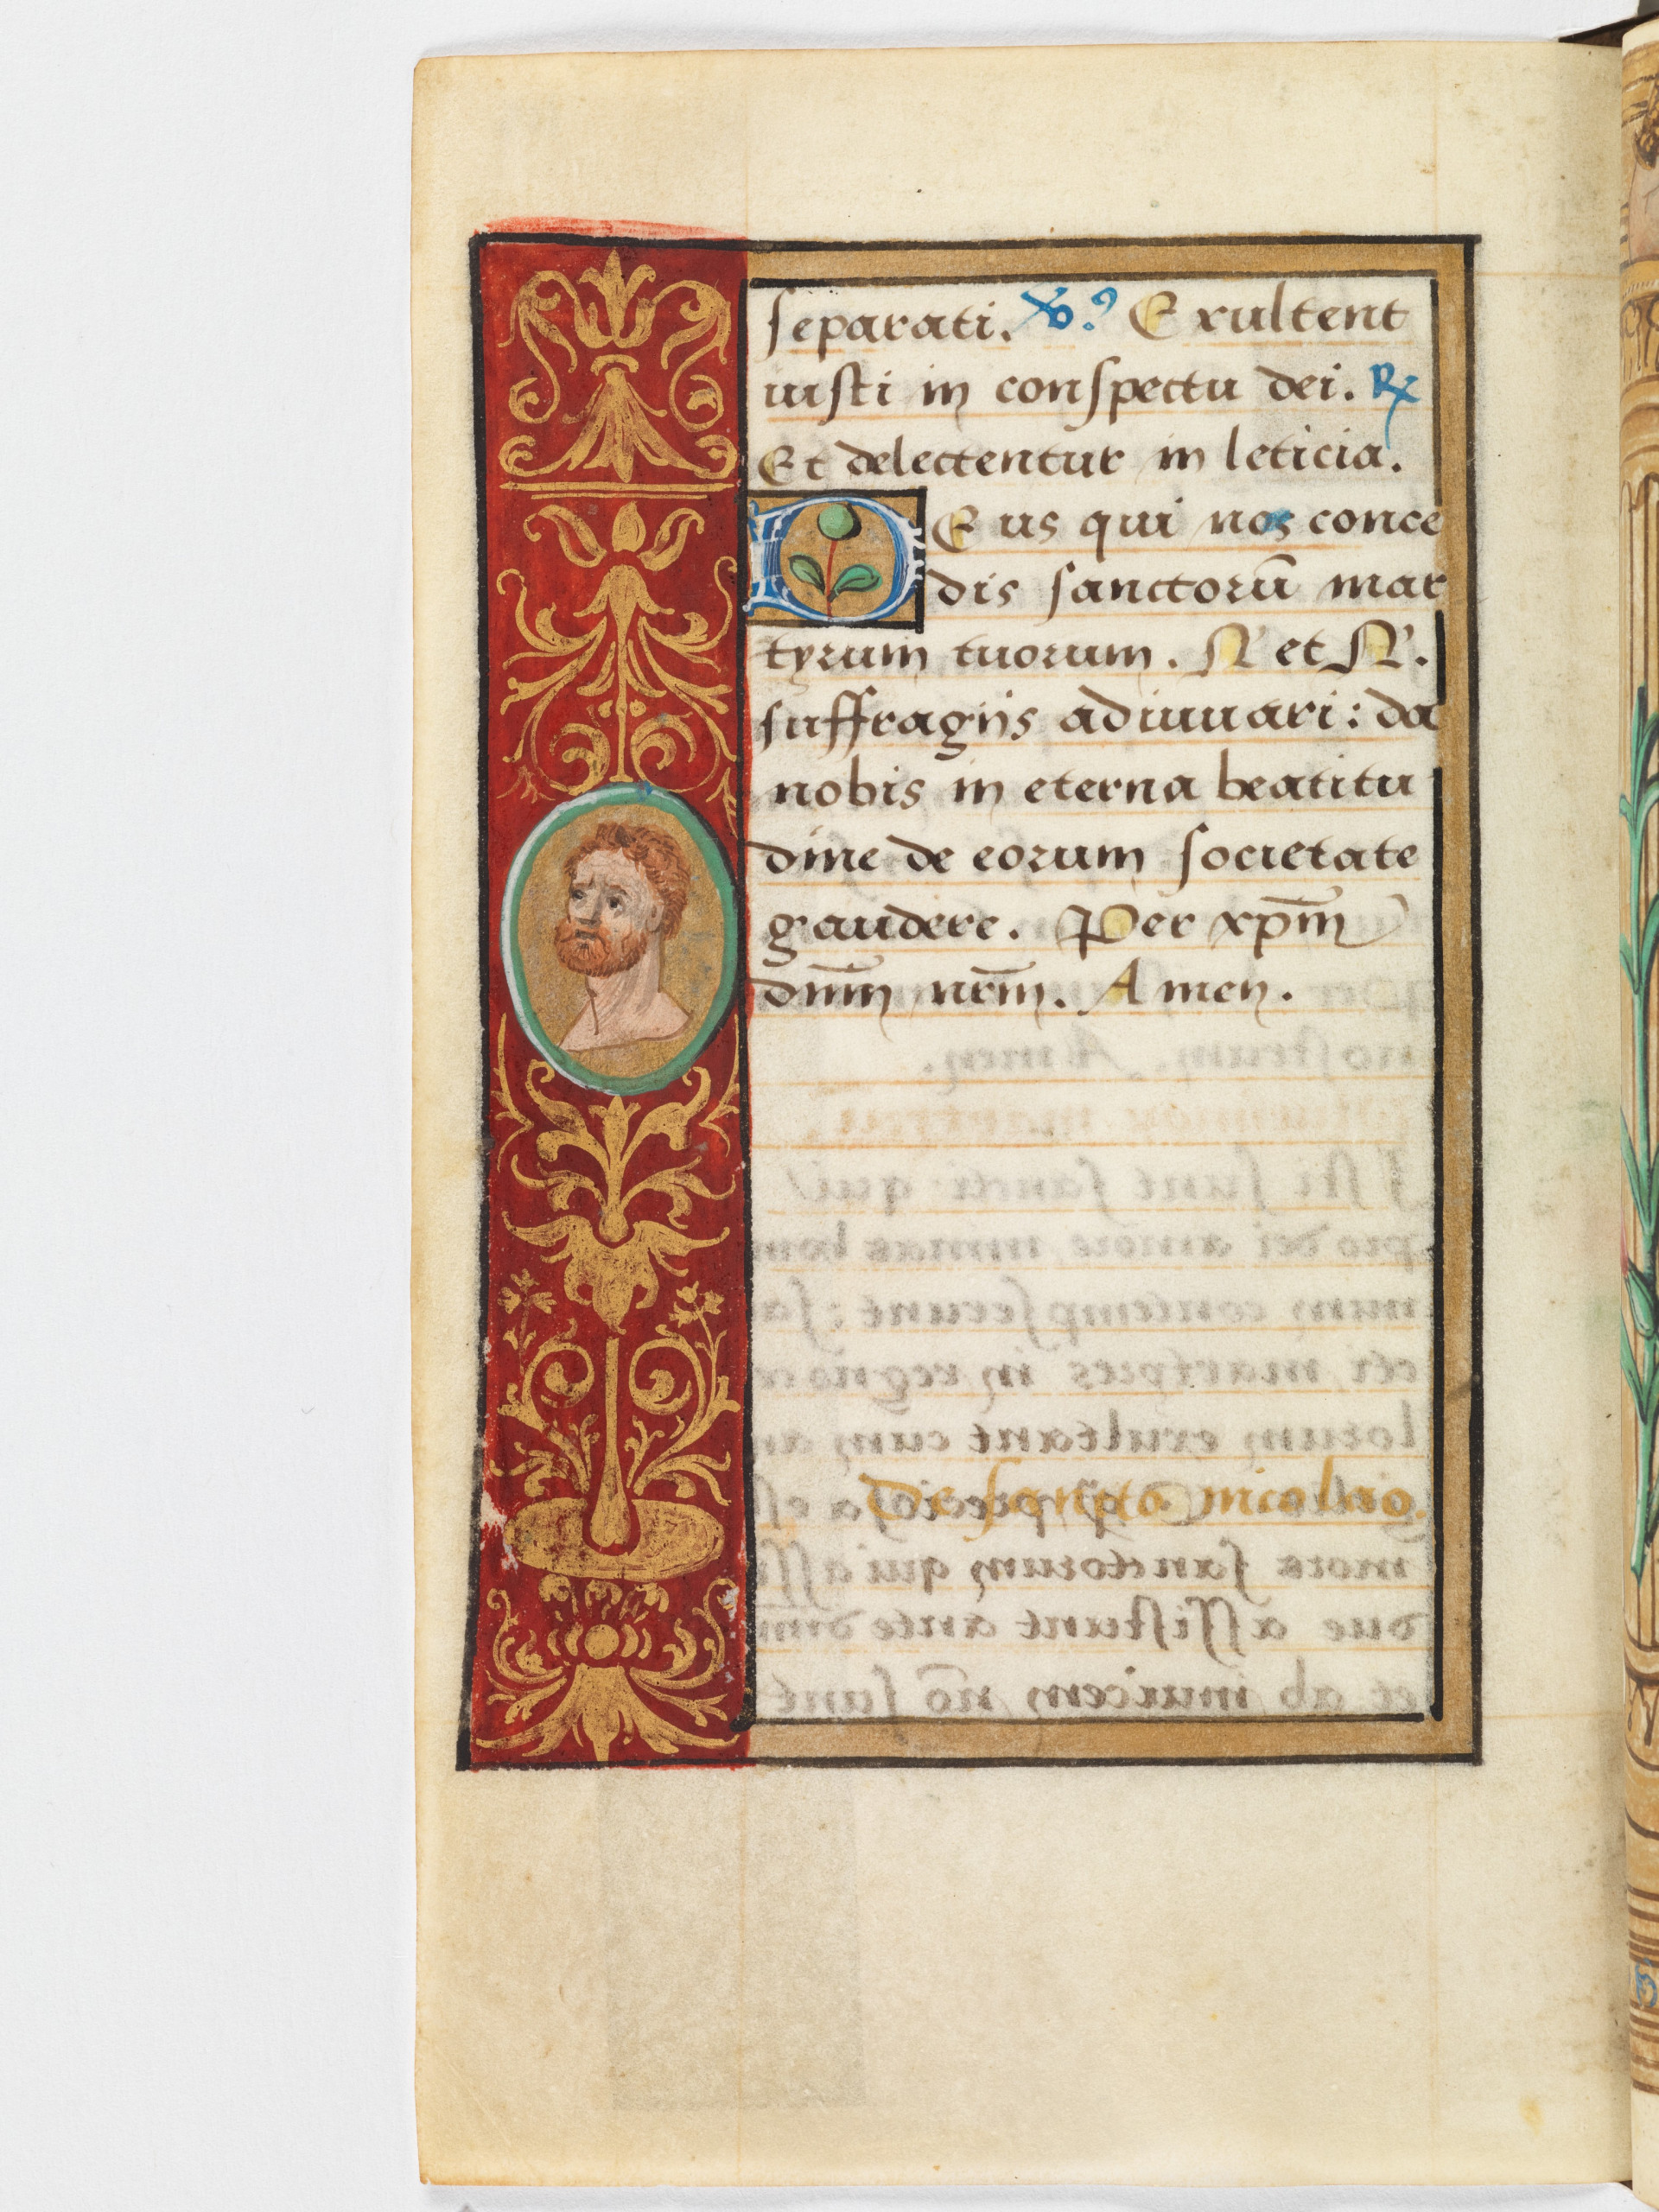 separati. ℣ Exultent
iusti in conspectu dei. ℟
Et delectentur in leticia.
Deus qui nos conce
dis sanctorū mar
tyrum tuorum. N et N.
suffragiis adiuuari: da
nobis in eterna beatitu
dine de eorum societate
gaudere. Per xp̄m
dn̄m nr̄m. Amen.
De sancto nicolao.